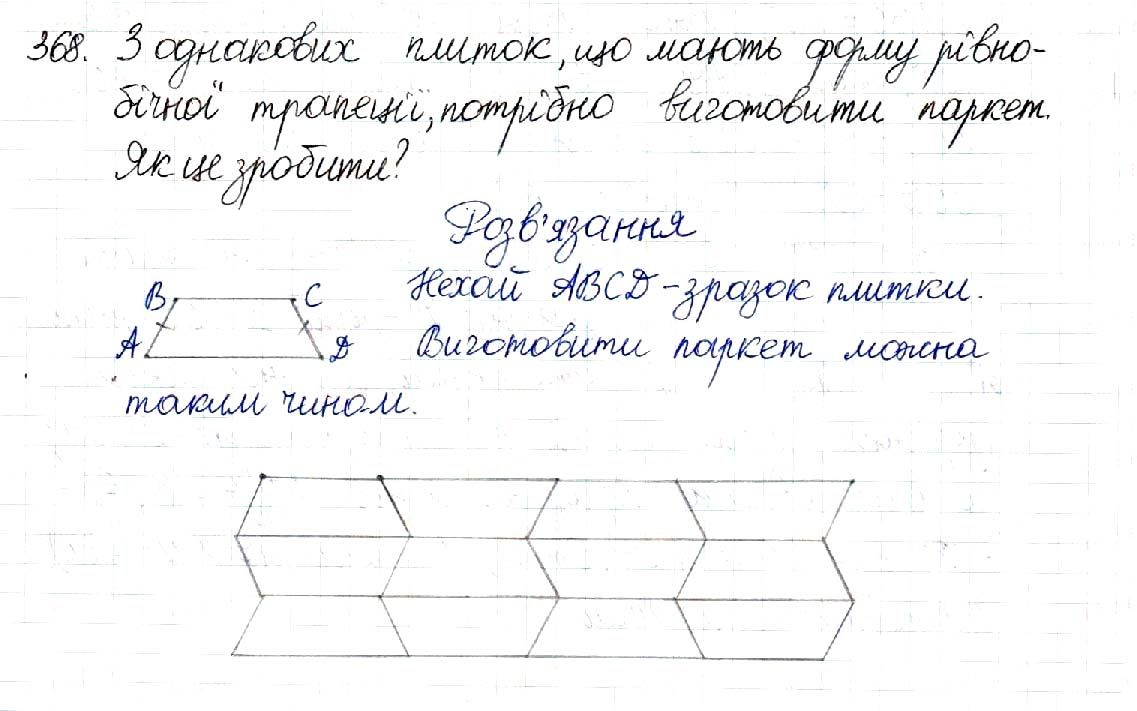 368. З однакових плиток, що мають форму рівно-
бічної трапеції, потрібно виготовити паркет.
Як це зробити?
Розв'язання
B C Нехай ABCD - зразок плитки.
A D Виготовити паркет можна
таким чином.